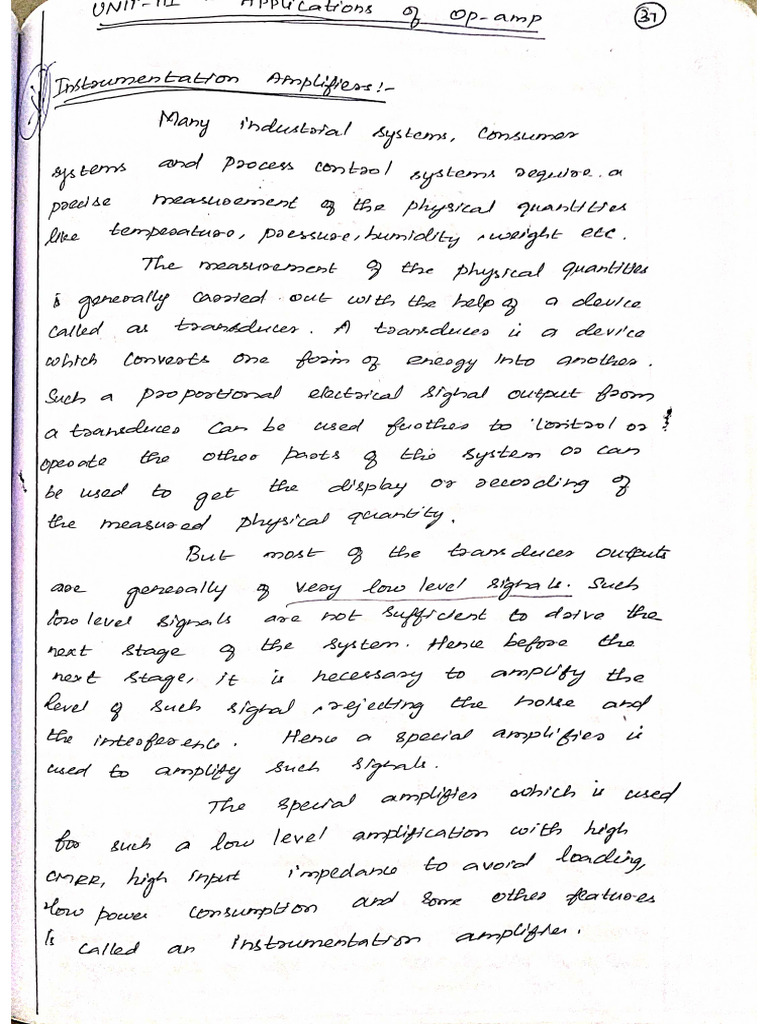 UNIT-III Applications of Op-amp
37
Instrumentation Amplifiers:-
Many industrial systems, consumer
systems and process control systems require a
precise measurement of the physical quantities
like temperature, pressure, humidity, weight etc.
The measurement of the physical quantities
is generally carried out with the help of a device
called as transducer. A transducer is a device
which converts one form of energy into another.
Such a proportional electrical signal output from
a transducer can be used further to control or
operate the other parts of the system or can
be used to get the display or recording of
the measured physical quantity.
But most of the transducer outputs
are generally of very low level signals. Such
low level signals are not sufficient to drive the
next stage of the system. Hence before the
next stage, it is necessary to amplify the
level of such signal, rejecting the noise and
the interference. Hence a special amplifier is
used to amplify such signals.
The special amplifier which is used
for such a low level amplification with high
CMRR, high input impedance to avoid loading,
low power consumption and some other features
is called an instrumentation amplifier.